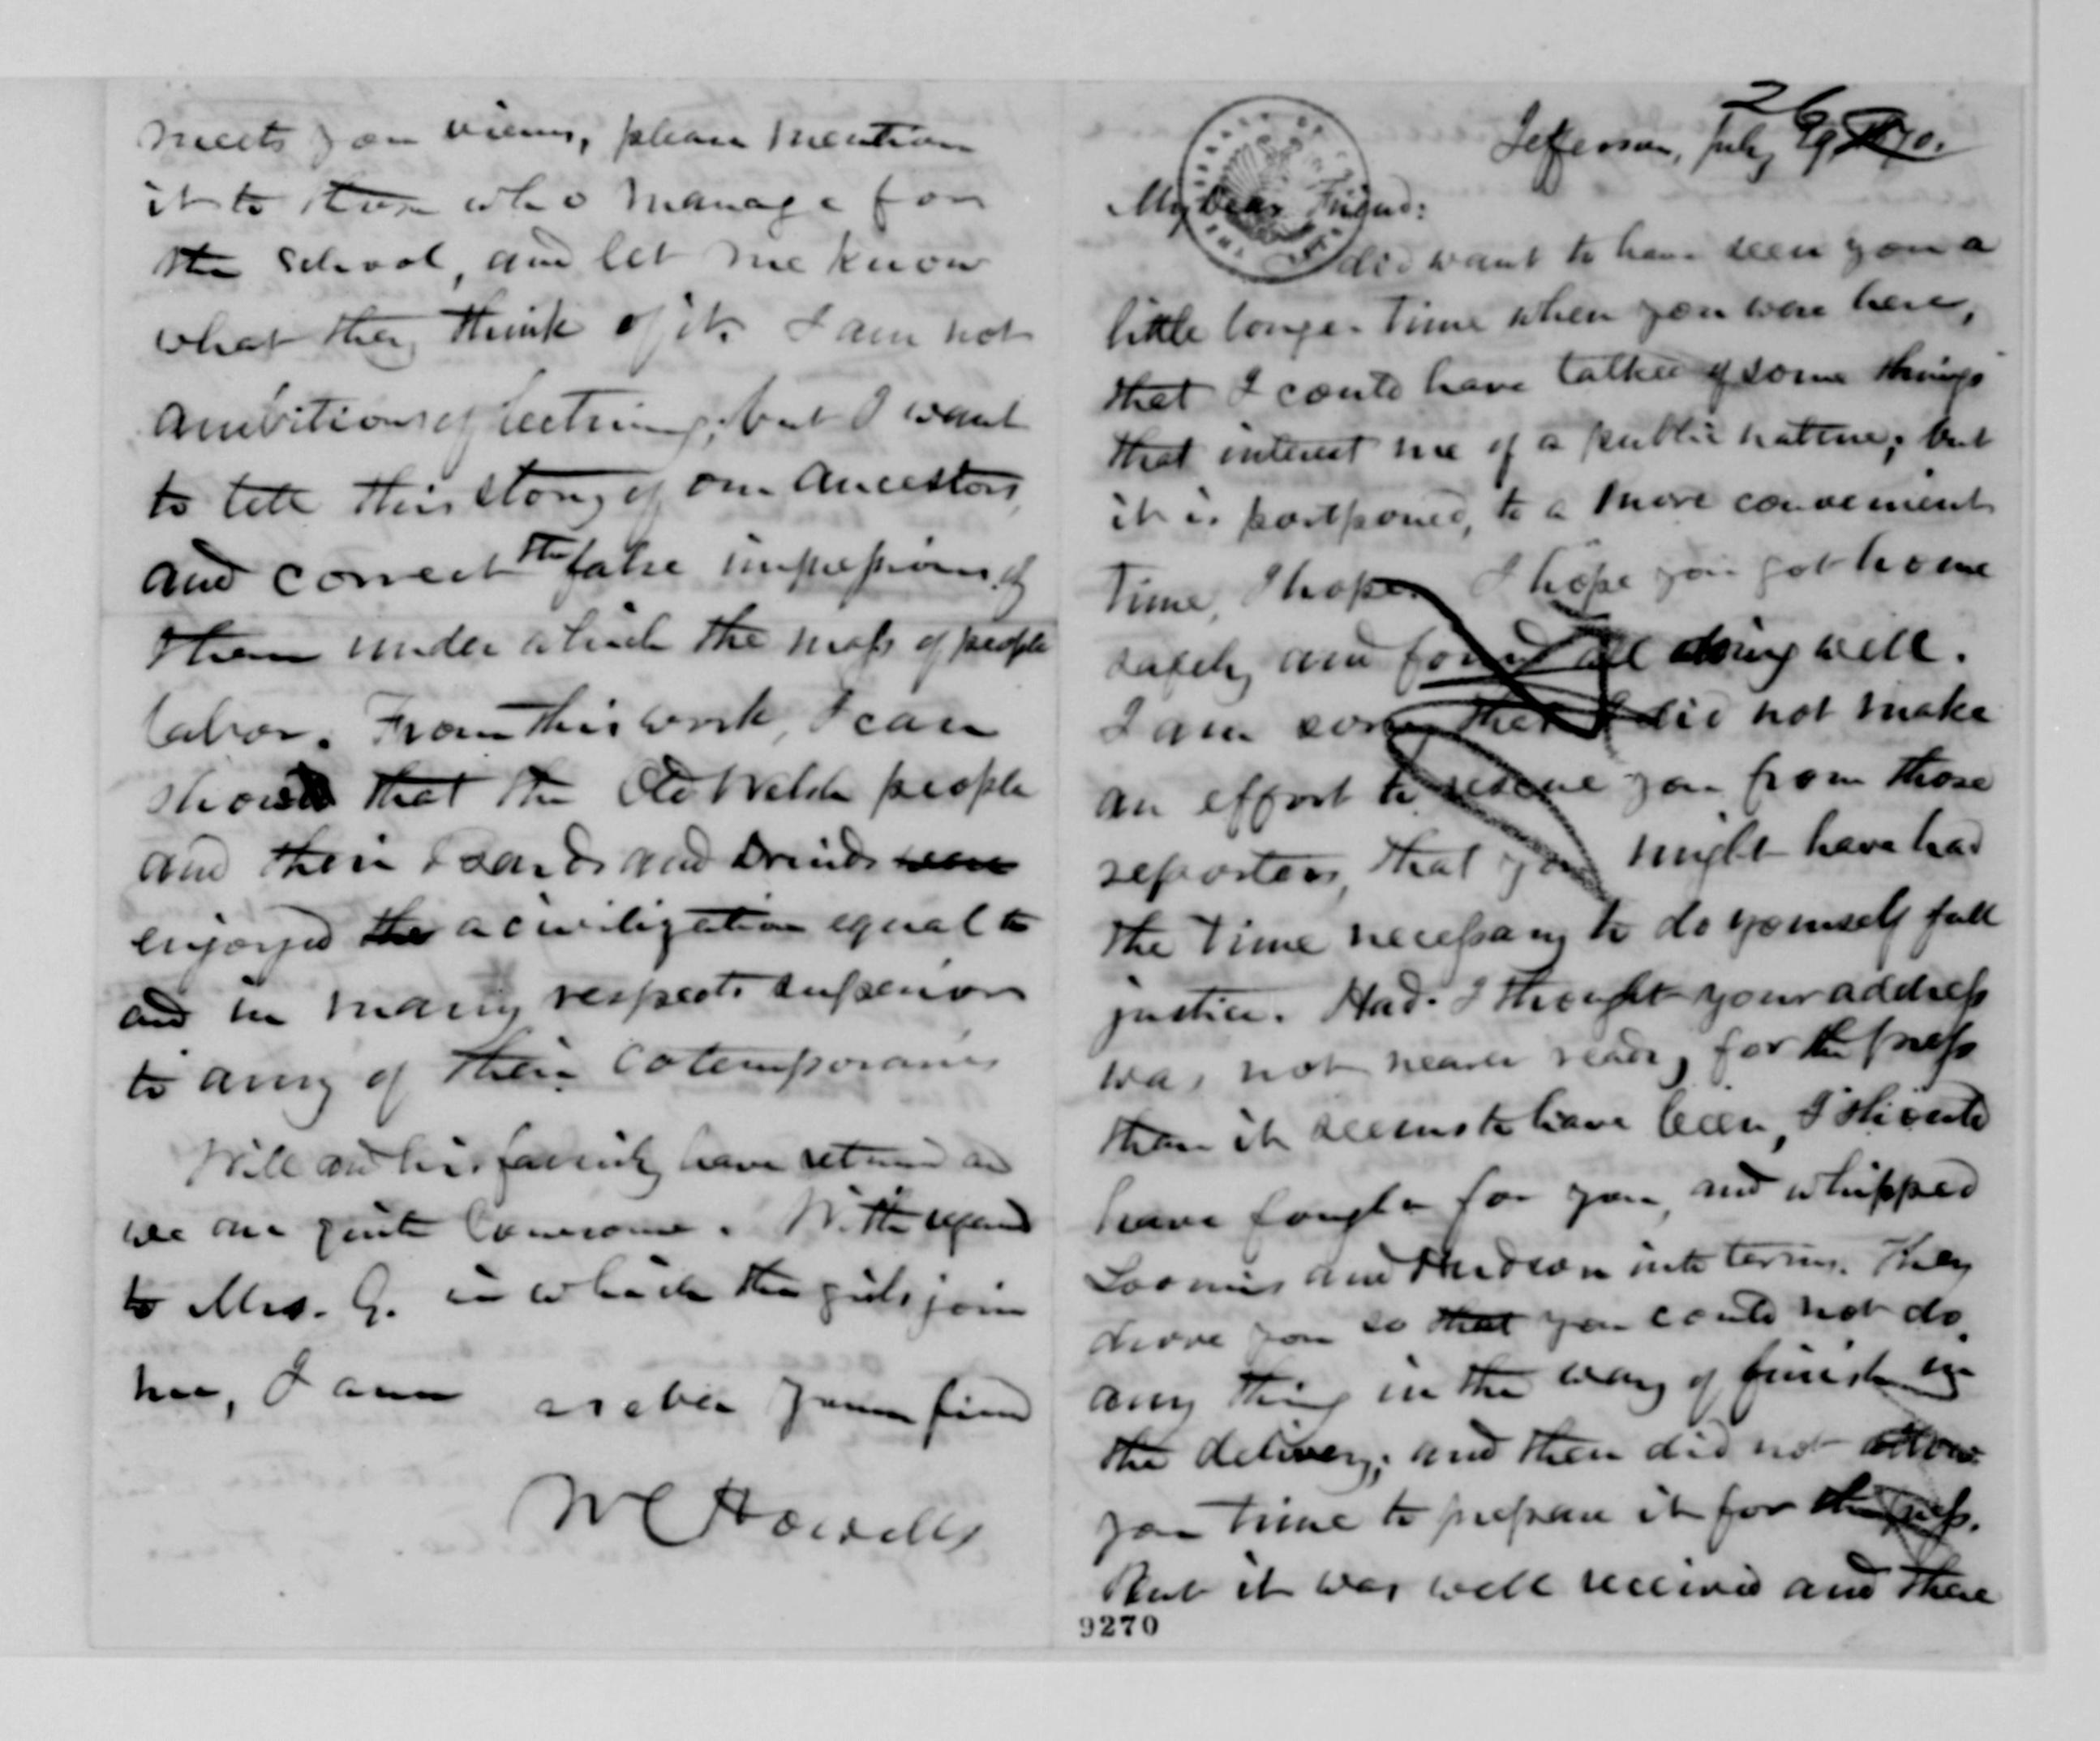 Jefferson, July 29, 1870.
26
My Dear Friend:
I did want to have seen you a
little longer time when you were here,
that I could have talked of some things
that interest me of a public nature; but
it is postponed, to a more convenient
time, I hope. I hope you got home
safely and found all doing well.
I am sorry that I did not make
an effort to rescue you from those
reporters, that you might have had
the time necessary to do yourself full
justice. Had I thought your address
was not nearer ready for the press
than it seems to have been, I should
have fought for you, and whipped
Loomis and Hudson into terms. They
drove you so that you could not do
any thing in the way of finishing
the delivery; and then did not allow
you time to prepare it for the press.
But it was well received and there
9270
meets your views, please mention
it to those who manage for
the school, and let me know
what they think of it. I am not
ambitious of lecturing; but I want
to tell this story of our ancestors,
and correct the false impressions of
them under which the mass of people
labor. From this work, I can
show that the Old Welsh people
and their Bards and Druids were
enjoyed the a civilization equal to
and in many respects superior
to any of their cotemporaries
Will and his family have returned and
we are quite lonesome. With regard
to Mrs. G. in which the girls join
me, I am as ever your friend
W C Howells